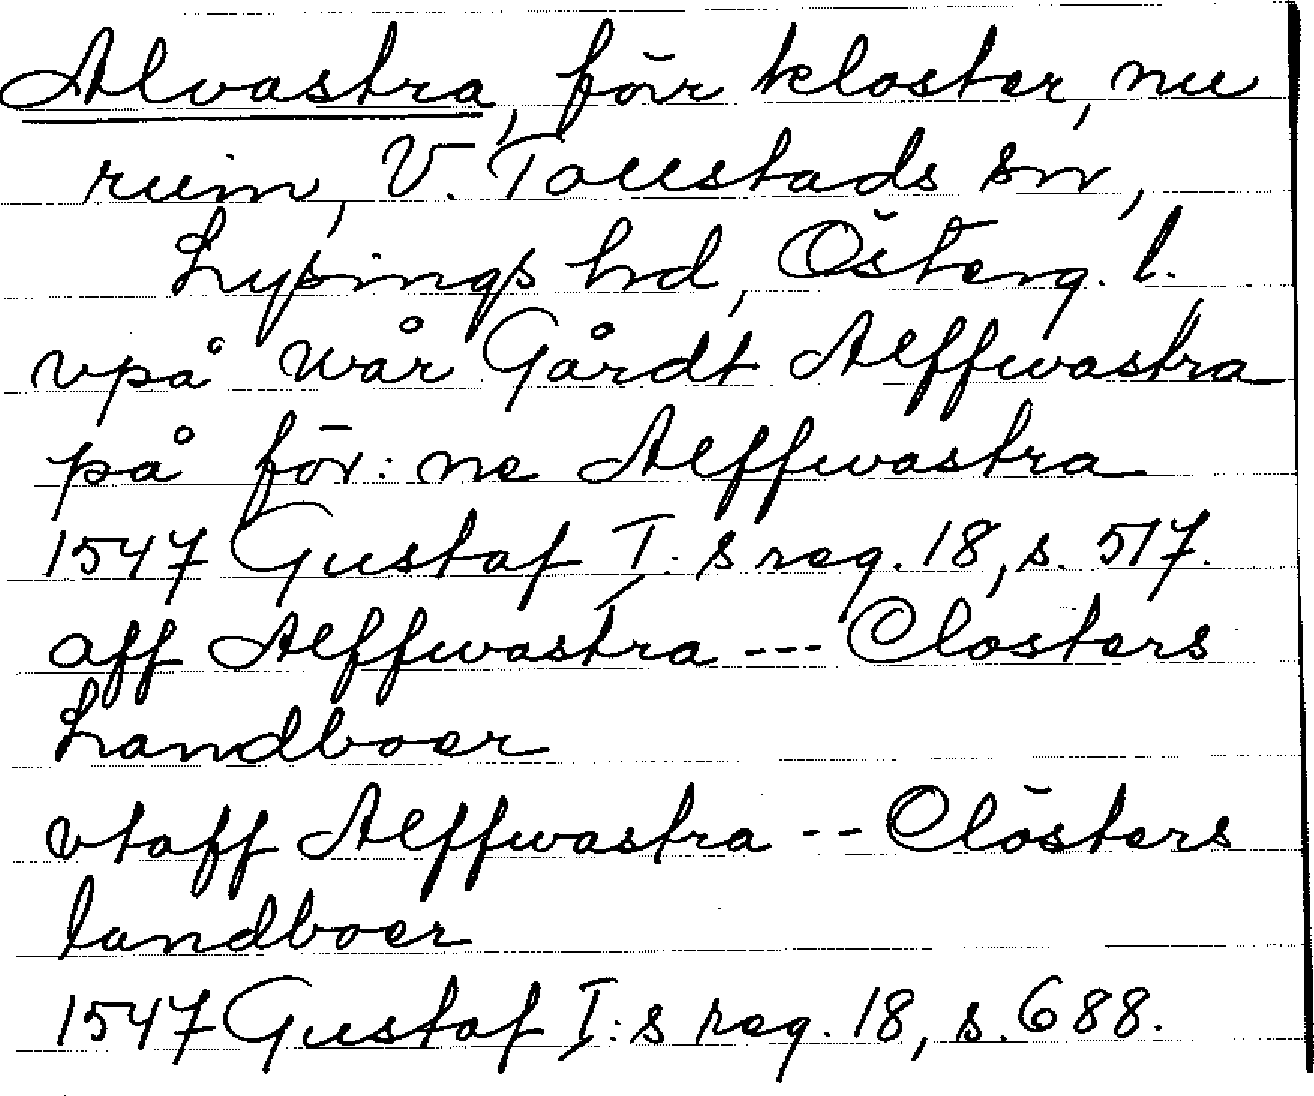 Alvastra, förr kloster, nu
ruin, V. Tollstads sn,
Lysings hd, Österg. l.
vpå wår Gårdt Alffwastra
på för: ne Alffwastra
1547 Gustaf I: s reg. 18, s. 517.
aff Alffwastra --- Closters
Landboer
vtaff Alffwastra -- Clösters
landboer
1547 Gustaf I: s reg. 18, s. 688.